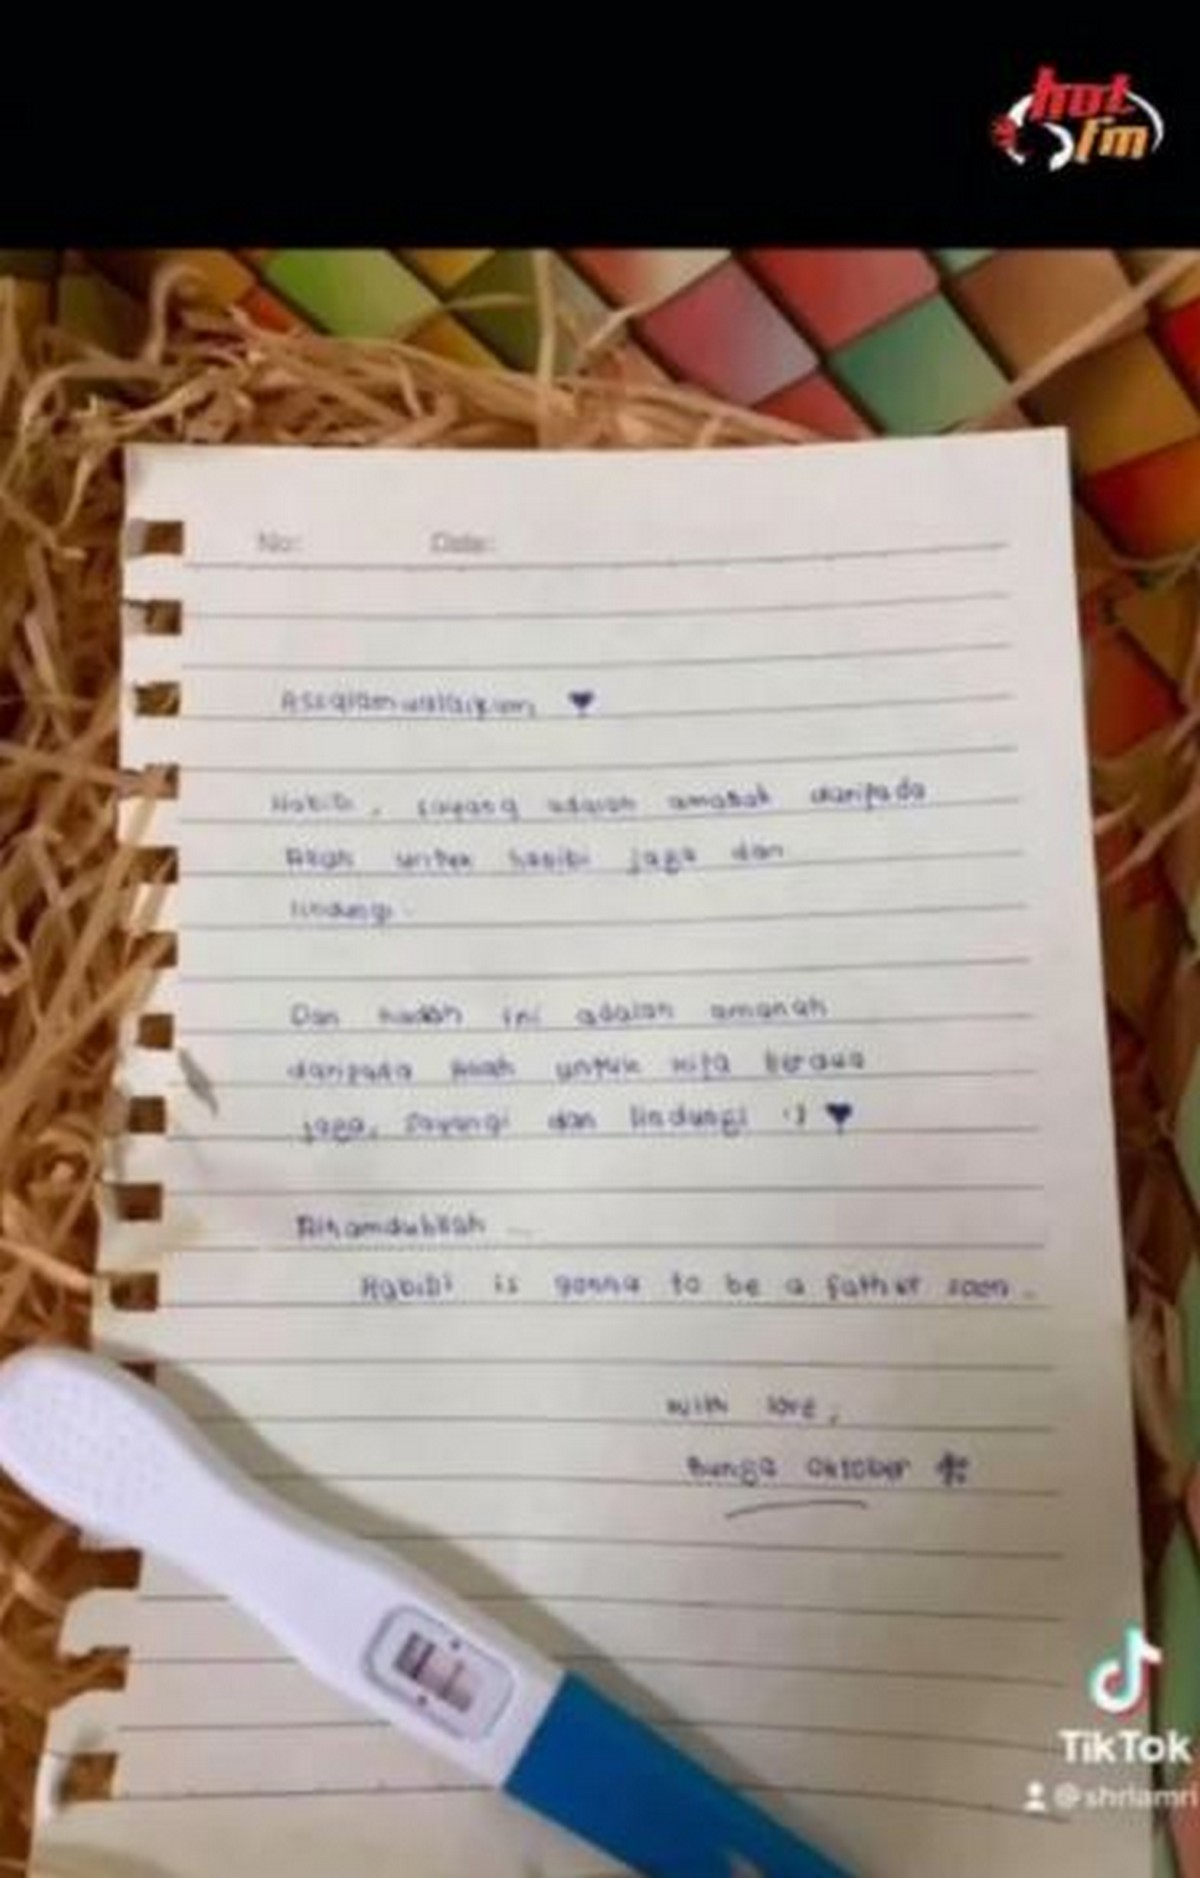 hot
fm
No: Date:
Assalamualaikum
Habibi, sayang adalah amanah daripada
Allah untuk habibi jaga dan
lindungi.
Dan hadiah ini adalah amanah
daripada Allah untuk kita berdua
jaga, sayangi dan lindungi :)
Alhamdulillah ...
Habibi is gonna to be a father soon.
With love,
Bunga Oktober
TikTok
@shrlamri